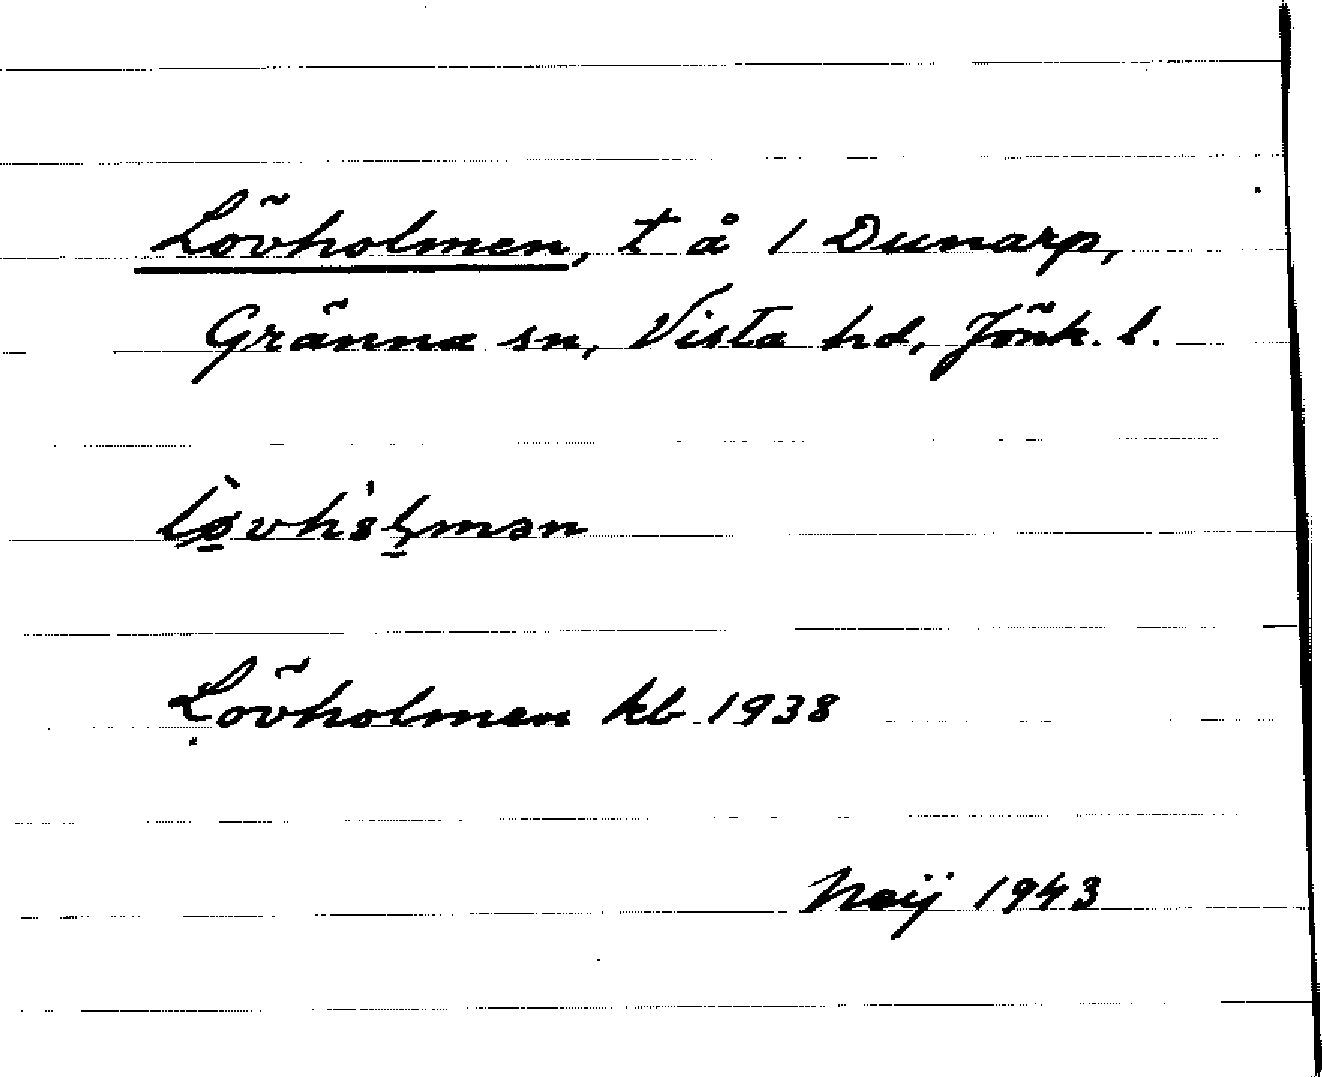 Lövholmen, t å 1 Dunarp,
Gränna sn, Vista hd, Jönk. l.
Lövholmen kb 1938
1943